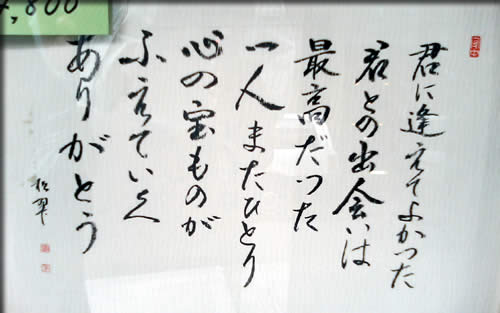 君に逢えてよかった
君との出会いは
最高だった
一人またひとり
心の宝ものが
ふえていく
ありがとう
,800